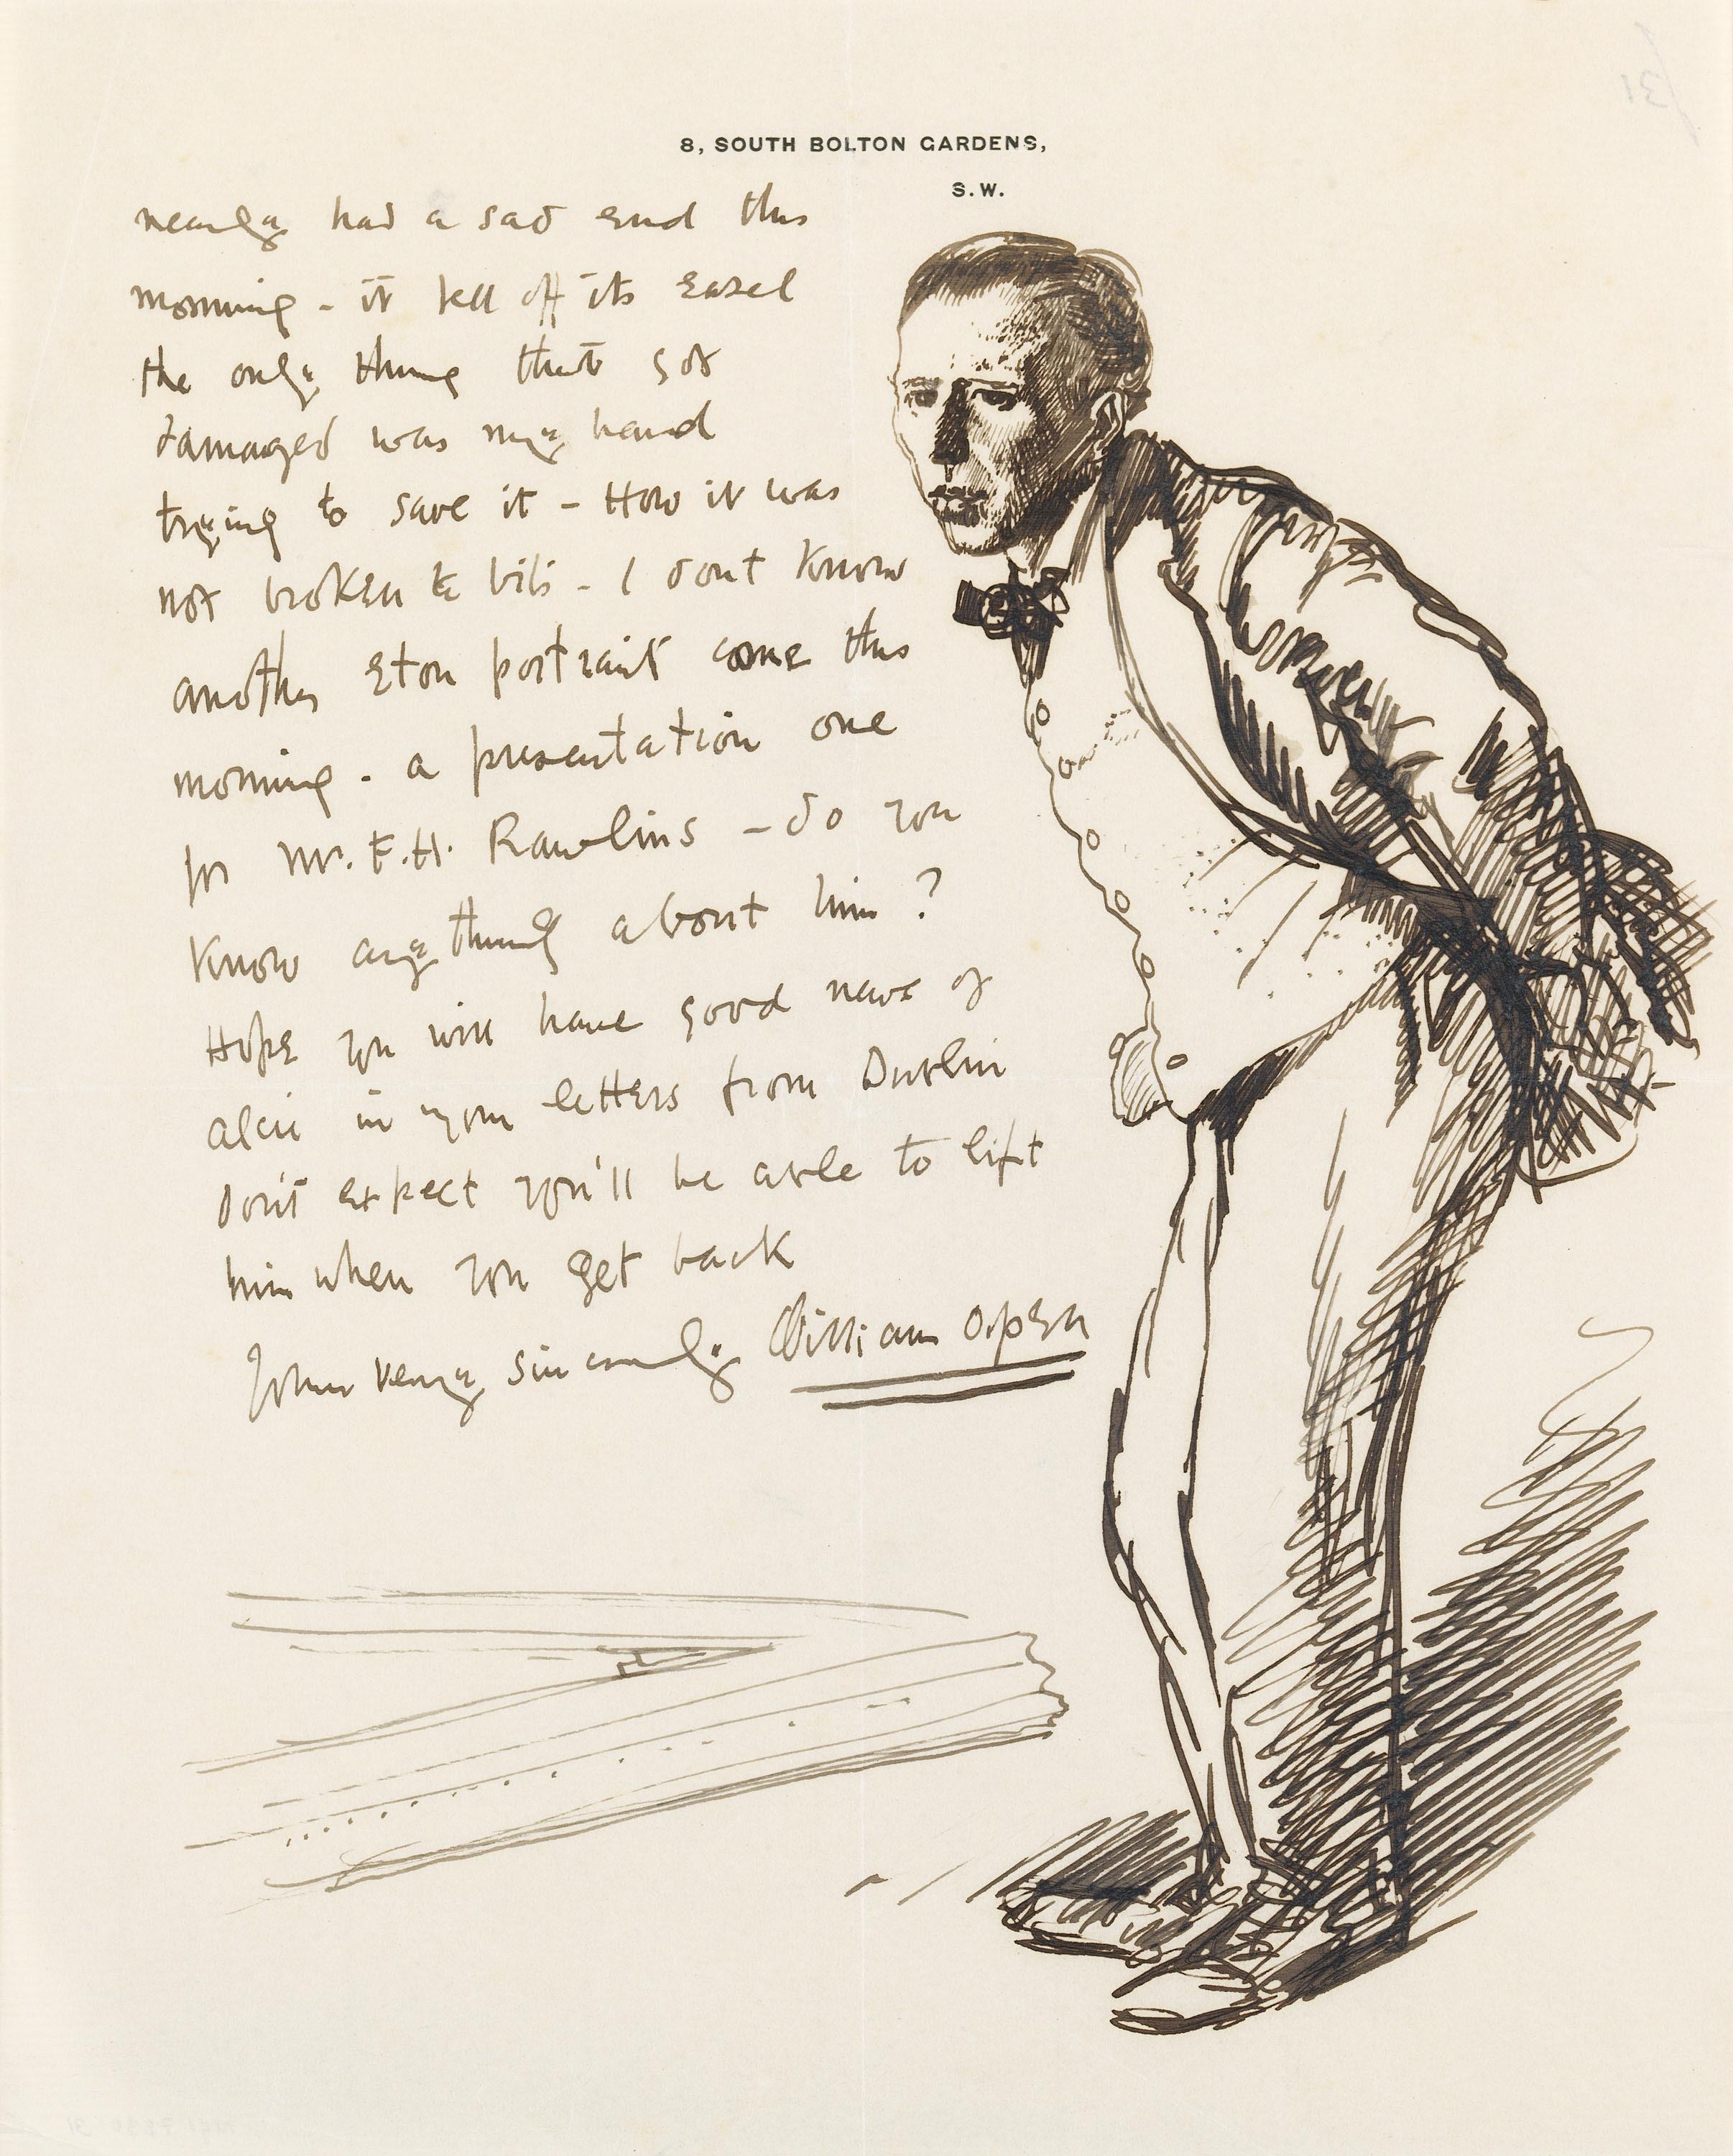 8, SOUTH BOLTON GARDENS,
S.W.
nearly had a sad end this
morning - it fell off its easel
the only thing that got
damaged was my hand
trying to save it - How it was
not broken to bits - I dont know
another Eton portrait come this
morning - a presentation one
for Mr. F.H. Rawlins - do you
know anything about him?
Hope you will have good news of
alec in your letters from Dublin
Dont expect you'll be able to lift
him when you get back
Yours very sincerely William Orpen
31